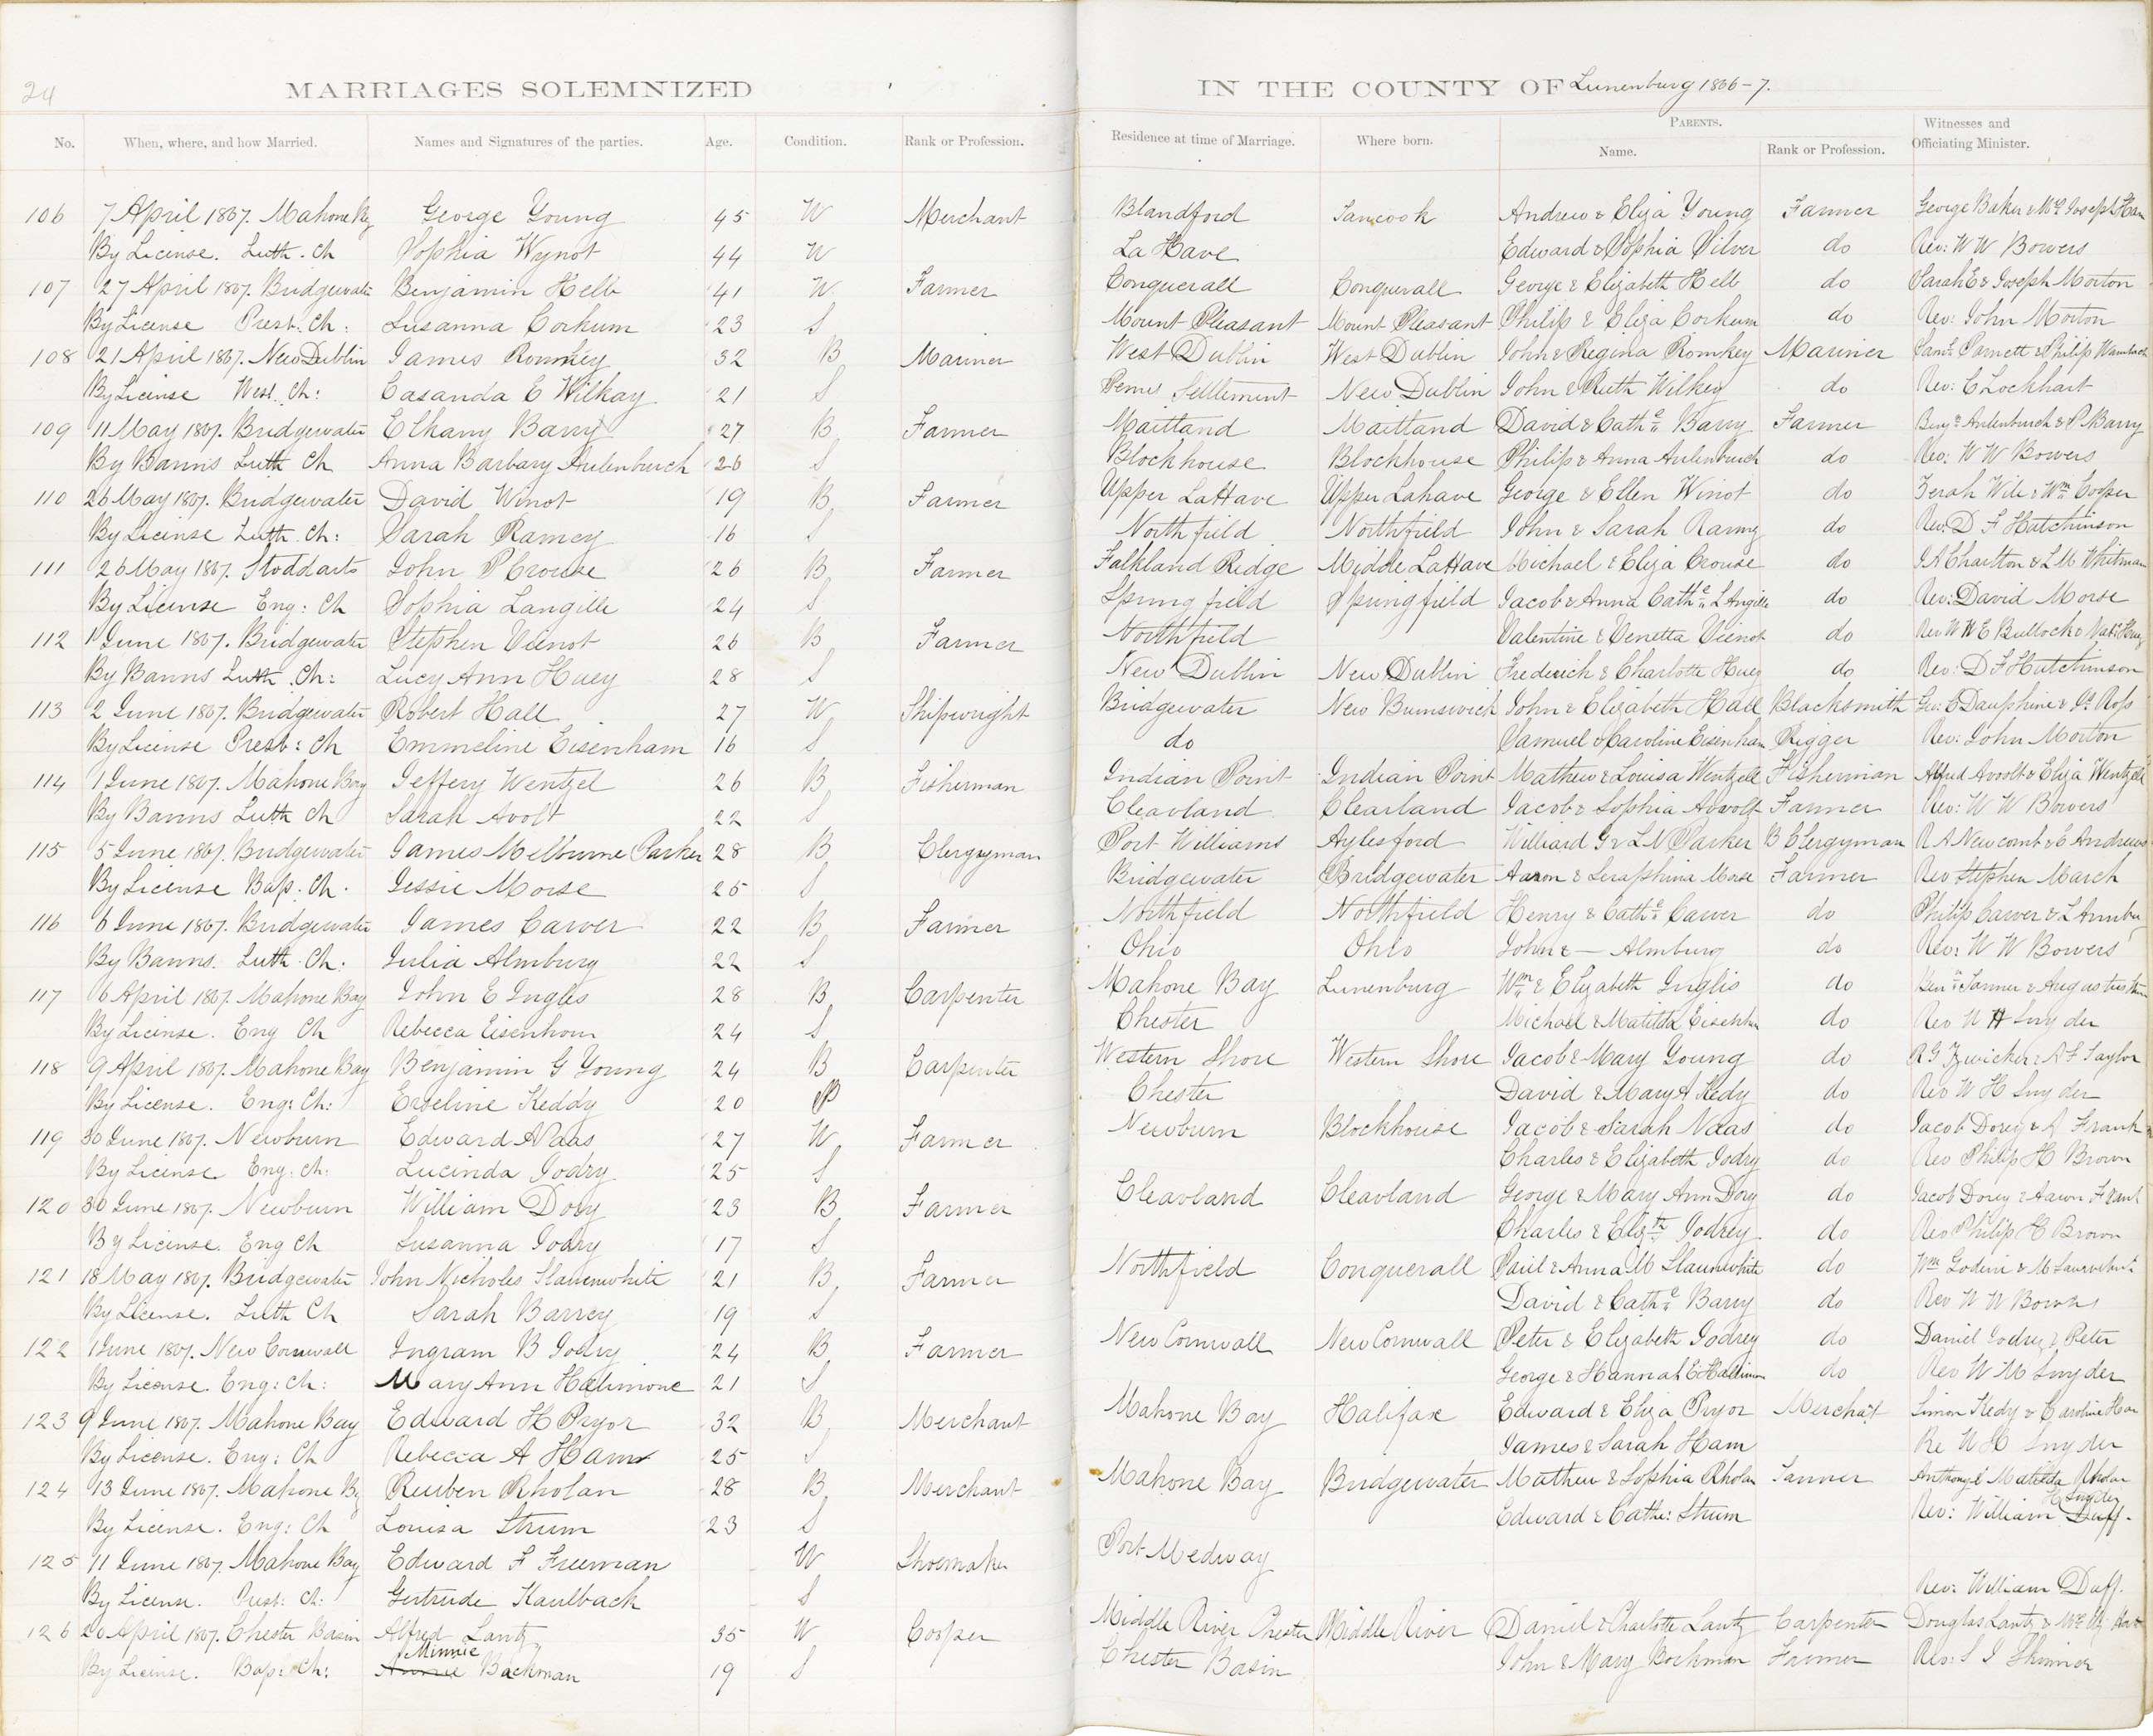 24
MARRIAGES SOLEMNIZED IN THE COUNTY OF Lunenburg 1866-7.
No. When, where, and how Married. Names and Signatures of the parties. Age. Condition. Rank or Profession. Residence at time of Marriage. Where born. PARENTS. Name. Rank or Profession. Witnesses and Officiating Minister.
106 7 April 1867. Mahone Bay George Young 45 W Merchant Blandford Tancook Andrew & Eliza Young Farmer George Baker & Mrs Joseph Ham
By License. Luth. Ch Sophia Wynot 44 W La Have Edward & Sophia Silver do Rev: W W Bowers
107 27 April 1867. Bridgewater Benjamin Helb 41 W Farmer Conquerall Conquerall George & Elizabeth Helb do Sarah E & Joseph Morton
By License Prest: Ch: Susanna Corkum 23 S Mount Pleasant Mount Pleasant Philip & Eliza Corkum do Rev: John Morton
108 21 April 1867. New Dublin James Romkey 32 B Mariner West Dublin West Dublin John & Regina Romkey Mariner Saml Parnett & Philip Wambach
By License Wesl. Ch: Casanda E Wilkay 21 S Pernes Settlement New Dublin John & Ruth Wilkey do Rev: C Lockhart
109 11 May 1867. Bridgewater Elkany Barry 27 B Farmer Maitland Maitland David & Cathe Barry Farmer Benjn Aulenburch & P Barry
By Banns Luth Ch Anna Barbary Aulenburch 26 S Blockhouse Blockhouse Philip & Anna Aulenburch do Rev: W W Bowers
110 26 May 1867. Bridgewater David Winot 19 B Farmer Upper LaHave Upper Lahave George & Ellen Winot do Zerah Wile & Wm Cooper
By License Luth. Ch: Sarah Ramey 16 S Northfield Northfield John & Sarah Ramey do Rev: D F Hutchinson
111 26 May 1867. Stoddarts John P Crouse 26 B Farmer Falkland Ridge Middle LaHave Michael & Eliza Crouse do J A Charlton & L M Whitman
By License Eng: Ch Sophia Langille 24 S Springfield Springfield Jacob & Anna Cathe L Angille do Rev: David Morse
112 1 June 1867. Bridgewater Stephen Veinot 26 B Farmer Northfield Valentine & Venetta Vienot do Rev W W E Bullock & Natl Huey
By Banns Luth. Ch: Lucy Ann Huey 28 S New Dublin New Dublin Frederich & Charlotte Huey do Rev: D F Hutchinson
113 2 June 1867. Bridgewater Robert Hall 27 W Shipwright Bridgewater New Brunswick John & Elizabeth Hall Blacksmith Geo: E Dauphine & Js Ross
By License Prest: Ch Emmeline Eisenham 16 S do Samuel & Caroline Eisenham Rigger Rev: John Morton
114 1 June 1867. Mahone Bay Jeffery Wentzel 26 B Fisherman Indian Point Indian Point Mathew & Louisa Wentzell Fisherman Alfred Avoolt & Eliza Wentzell
By Banns Luth Ch Sarah Avolt 22 S Cleavland Clearland Jacob & Sophia Avvolt Farmer Rev: W W Bowers
115 5 June 1867. Bridgewater James Melbourne Parker 28 B Clergyman Port Williams Aylesford Williard G & L N Parker B Clergyman R A Newcomb & E Andrews
By License Bap. Ch. Jessie Morse 25 S Bridgewater Bridgewater Aaron & Seraphina Morse Farmer Rev Stephen March
116 6 June 1867. Bridgewater James Carver 22 B Farmer Northfield Northfield Henry & Cathe Carver do Philip Carver & L
By Banns. Luth. Ch. Julia Almburg 22 S Ohio Ohio John & — Almburg do Rev: W W Bowers
117 6 April 1867. Mahone Bay John E Inglis 28 B Carpenter Mahone Bay Lunenburg Wm & Elizabeth Inglis do Benn Tanner & Augustus
By License. Eng Ch Rebecca Eisenhour 24 S Chester Michael & Matilda do Rev W H Snyder
118 9 April 1867. Mahone Bay Benjamin G Young 24 B Carpenter Western Shore Western Shore Jacob & Mary Young do R G Zwicker & A F Taylor
By License. Eng: Ch: Erseline Keddy 20 Chester David & Mary A Kedy do Rev W H Snyder
119 30 June 1867. Newburn Edward A Naas 27 W Farmer Newburn Blockhouse Jacob & Sarah Naas do Jacob Dorey & A Frank
By License Eng: Ch: Lucinda Jodry 25 S Charles & Elizabeth Jodry do Rev Philip H Brown
120 30 June 1867. Newburn William Dory 23 B Farmer Cleavland Cleavland George & Mary Ann Dory do Jacob Dorey & Aaron Frank
By License. Eng Ch Susanna Jodry 17 S Charles & Elizth Jodrey do Rev Philip H Brown
121 18 May 1867. Bridgewater John Nicholes Slauenwhite 21 B Farmer Northfield Conquerall Paul & Anna M Slaunwhite do Wm Godin & M
By License. Luth Ch Sarah Barrey 19 S David & Cathe Barry do Rev W W Bowers
122 1 June 1867. New Cornwall Ingram B Jodry 24 B Farmer New Cornwall New Cornwall Peter & Elizabeth Jodrey do Daniel Jodrey & Peter
By License. Eng: Ch: Mary Ann Hallimore 21 S George & Hannah E do Rev W M Snyder
123 9 June 1867. Mahone Bay Edward H Pryor 32 B Merchant Mahone Bay Halifax Edward & Eliza Pryor Merchat Simon Kedy & Caroline Ham
By License. Eng: Ch Rebecca A Ham 25 S James & Sarah Ham Re W H Snyder
124 13 June 1867. Mahone By Reuben Rholan 28 B Merchant Mahone Bay Bridgewater Mathew & Sophia Rholan Tanner Anthony & Matilda Rholan
By License. Eng: Ch Louisa Strum 23 S Edward & Cathe: Strum Rev: William H Snyder Duff.
125 11 June 1867. Mahone Bay Edward F Freeman W Shoemaker Port Medway
By License. Prest: Ch: Gertrude Kaulback S Rev: William Duff.
126 20 April 1867. Chester Basin Alfred Lantz 35 W Cooper Middle River Chester Middle River Daniel & Charlotte Lantz Carpenter Douglas Lantz & Mrs
By License. Bap: Ch: Annie Minnie Backman 19 S Chester Basin John & Mary Bockman Farmer Rev: S I Skinner